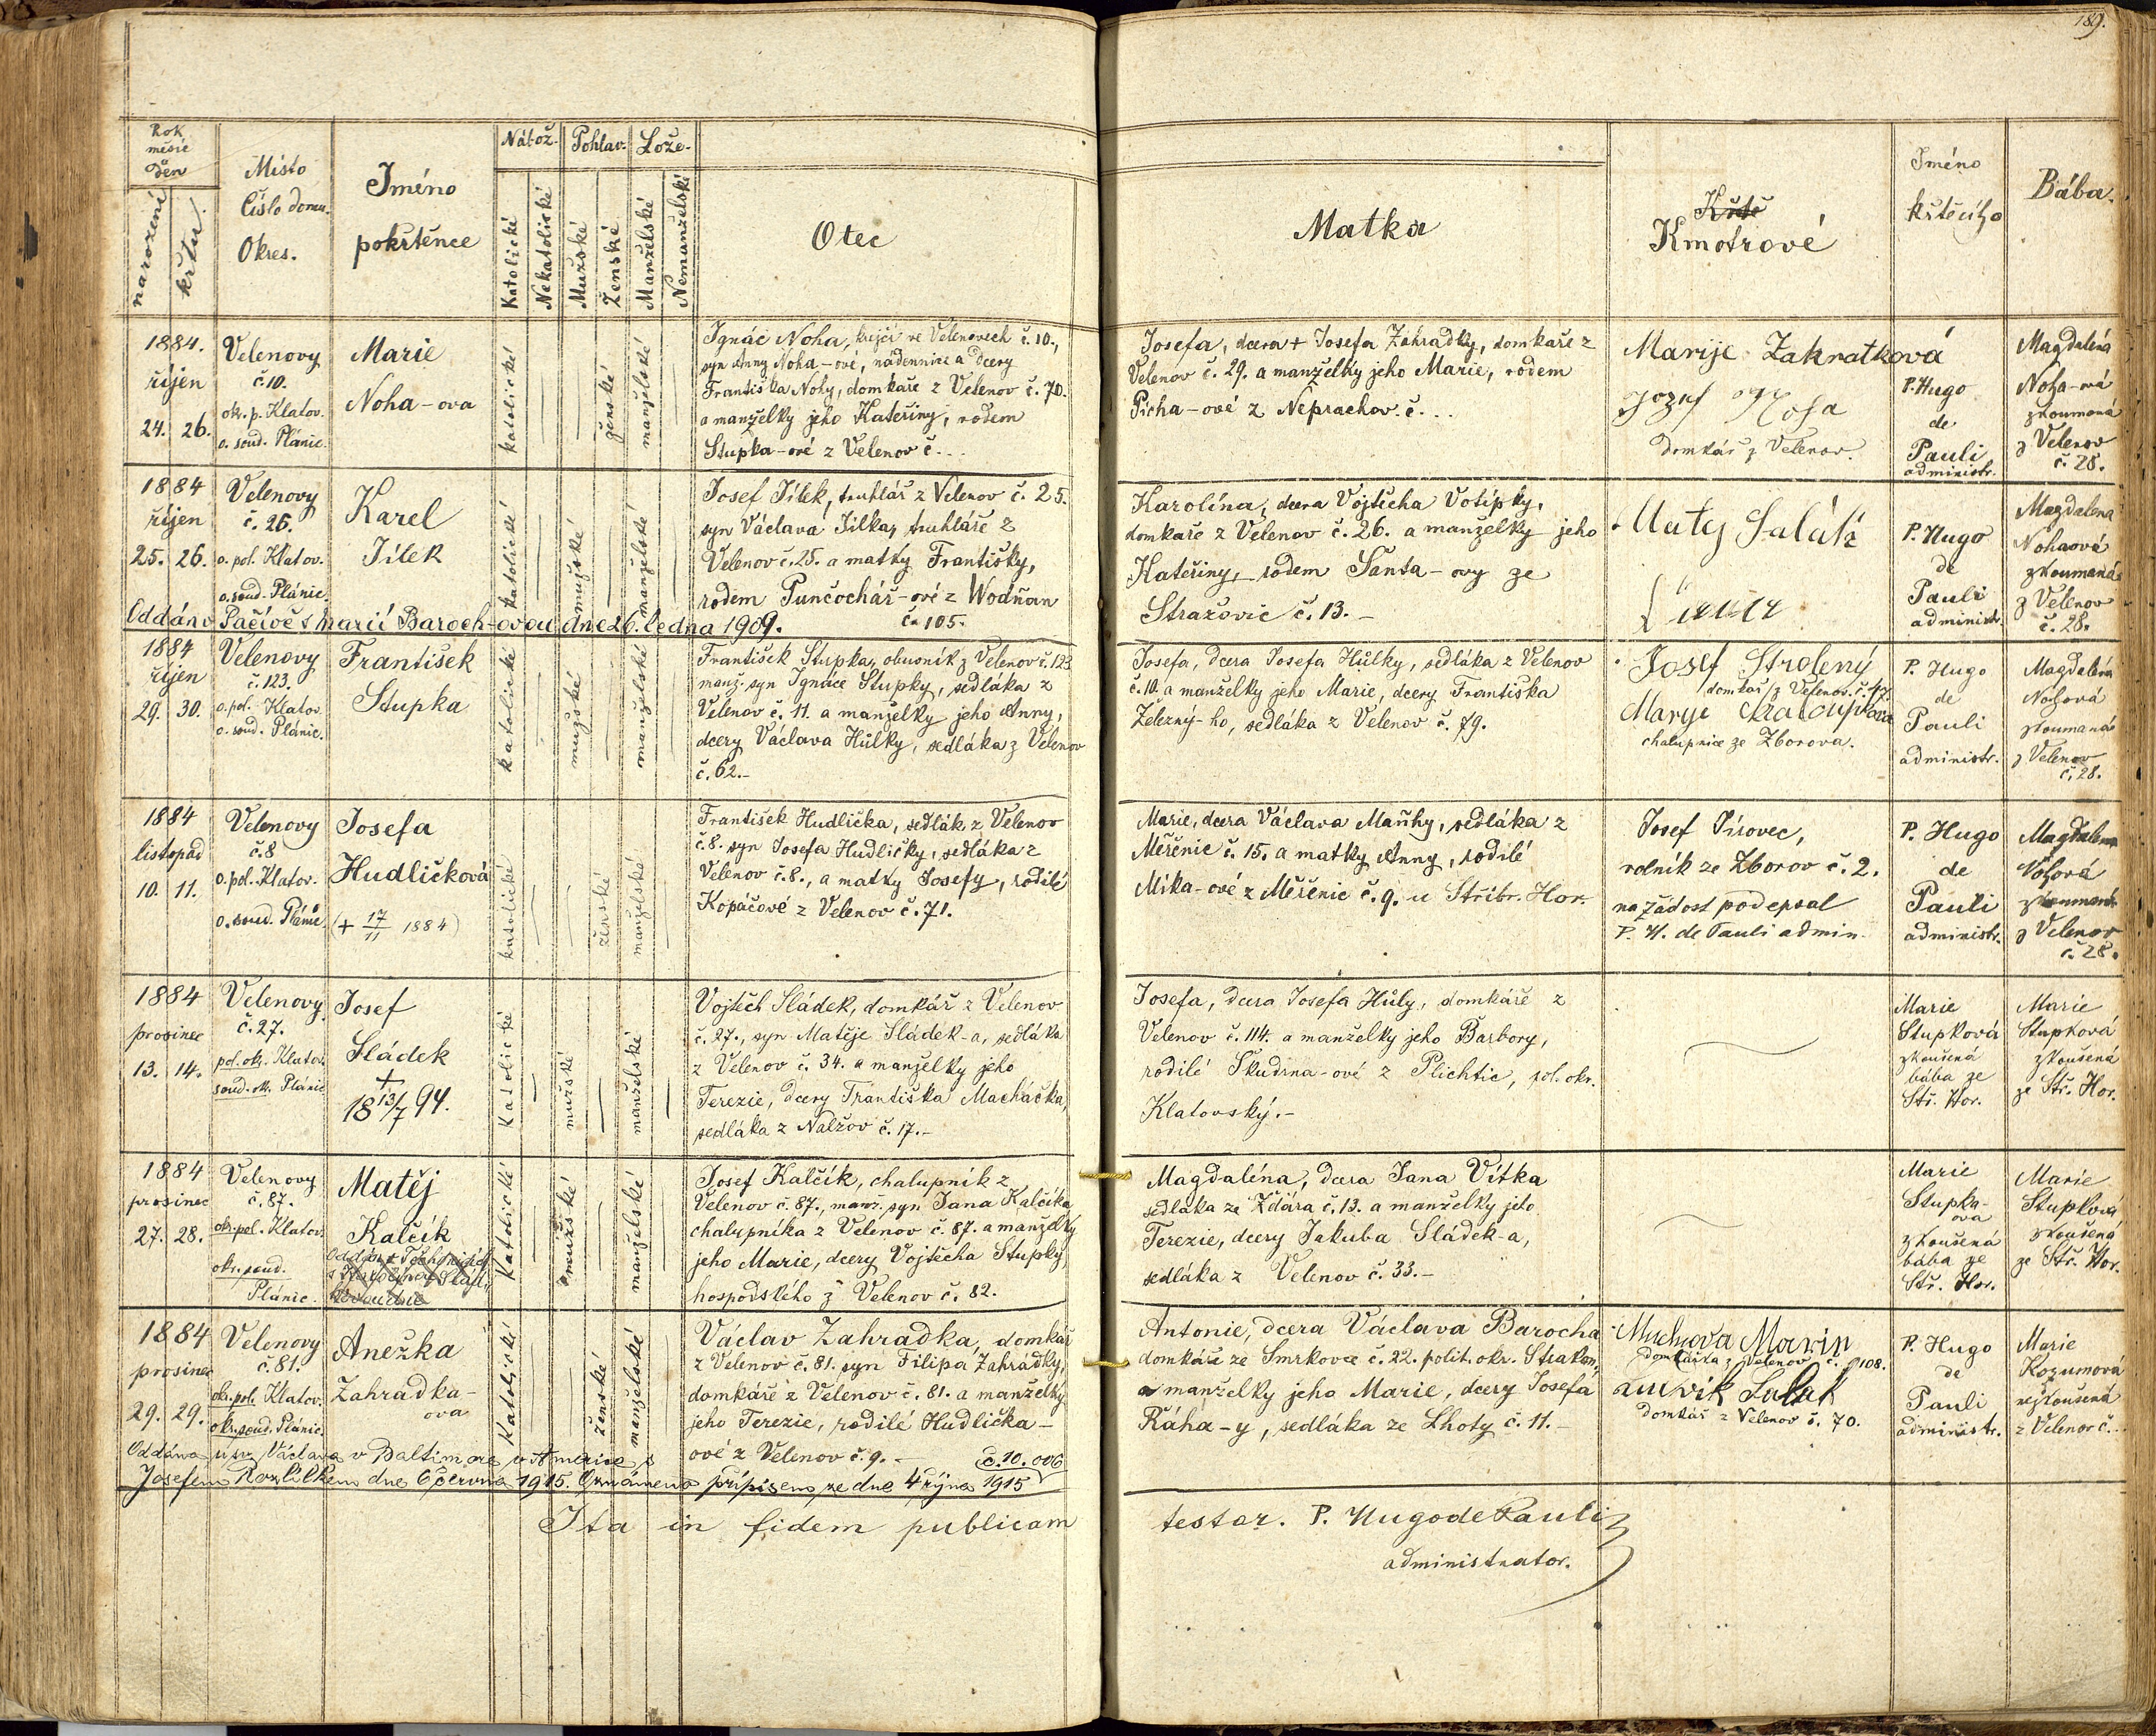 189.
Rok
měsíc
Den
narození
křtu.
Místo
Číslo domu.
Okres.
Jméno
pokřtěnce
Nábož.
Katolické
Nekatolické
Pohlav.
Mužské
Ženské
Lože.
Manželské
Nemanželské
Otec
Matka
Kmotrové
Jméno
křtícího
Bába.
1884.
říjen
24. 26.
Velenovy
č. 10.
okr. p. Klatov.
o. soud. Plánic.
Marie
Noha-ova
katolické
ženské
manželské
Ignác Noha, krejčí ve Velenovech č. 10.,
syn Anny Noha-ové, nádennice a dcery
Františka Nohy, domkaře z Velenov č. 70.
a manželky jeho Kateřiny, rodem
Stupka-ové z Velenov č...
Josefa, dcera + Josefa Zahrádky, domkaře z
Velenov č. 29. a manželky jeho Marie, rodem
Pícha-ové z Neprachov. č...
Marije Zakratková
Jozef Noha
domkář z Velenov.
P. Hugo
de
Pauli
administr.
Magdaléna
Noha-ová
zkoumaná
z Velenov
č. 28.
1884
říjen
25. 26.
Velenovy
č. 26.
o. pol. Klatov.
o. soud. Plánic.
Karel
Jílek
katolické
mužské
manželské
Josef Jílek, truhlář z Velenov č. 25.
syn Václava Jílka, truhláře z
Velenov č. 25. a matky Františky,
rodem Punčochář-ové z Wodňan
č. 105.
Oddán v Pačívě s Marií Baroch-ovou dne 26. ledna 1909.
Karolína, dcera Vojtěcha Votípky,
domkaře z Velenov č. 26. a manželky jeho
Kateřiny, rodem Šanta-ovy ze
Stražovic č. 13.-
Maty Salák
P. Hugo
de
Pauli
administr.
Magdalena
Nohaová
zkoumaná
z Velenov
č. 28.
1884
říjen
29. 30.
Velenovy
č. 123.
o. pol. Klatov.
o. soud. Plánic.
František
Stupka
katolické
mužské
manželské
František Stupka, obuvník z Velenov č. 123
manž. syn Ignáce Stupky, sedláka z
Velenov č. 11. a manželky jeho Anny,
dcery Václava Hůlky, sedláka z Velenov
č. 62.-
Josefa, dcera Josefa Hůlky, sedláka z Velenov
č. 10. a manželky jeho Marie, dcery Františka
Železný-ho, sedláka z Velenov č. 79.
Josef Strolený
domkář z Velenov. č. 47.
Marye Chaloupková
chalupnice ze Zborova.
P. Hugo
de
Pauli
administr.
Magdaléna
Nohová
zkoumaná
z Velenov
č. 28.
1884
listopad
10. 11.
Velenovy
č. 8
o. pol. Klatov.
o. soud. Plánic
Josefa
Hudličková
(+ 17/11 1884)
katolické
ženské
manželské
František Hudlička, sedlák z Velenov
č. 8. syn Josefa Hudličky, sedláka z
Velenov č. 8., a matky Josefy, rodilé
Kopáčové z Velenov č. 71.
Marie, dcera Václava Maňhy, sedláka z
Měřčnic č. 15. a matky Anny, rodilé
Míka-ové z Měřčnic č. 9. u Stříbr. Hor.
Josef Jírovec,
rolník ze Zborov č. 2.
na žádost podepsal
P. H. de Pauli admin.
P. Hugo
de
Pauli
administr.
Magdalena
Nohová
zkoumaná
z Velenov
č. 28.
1884
prosinec
13. 14.
Velenovy
č. 27.
pol. okr. Klatov.
soud. okr. Plánic
Josef
Sládek
+
18 13/7 94.
Katolické
mužské
manželské
Vojtěch Sládek, domkář z Velenov
č. 27., syn Matěje Sládek-a, sedláka
z Velenov č. 34. a manželky jeho
Terezie, dcery Františka Macháčka,
sedláka z Nalžov č. 17.-
Josefa, dcera Josefa Hůly, domkáře z
Velenov č. 114. a manželky jeho Barbory,
rodilé Škudrna-ové z Plichtic, pol. okr.
Klatovský.-
Marie
Stupková
zkoušená
bába ze
Stř. Hor.
Marie
Stupková
zkoušená
ze Stř. Hor.
1884
prosinec
27. 28.
Velenovy
č. 87.
okr. pol. Klatov.
okr. soud.
Plánic.
Matěj
Kalčík
Katolické
mužské
manželské
Josef Kalčík, chalupník z
Velenov č. 87., manž. syn Jana Kalčíka,
chalupníka z Velenov č. 87. a manželky
jeho Marie, dcery Vojtěcha Stupky,
hospodského z Velenov č. 82.
Magdaléna, dcera Jana Vítka
sedláka ze Ždára č. 13. a manželky jeho
Terezie, dcery Jakuba Sládek-a,
sedláka z Velenov č. 33.-
Marie
Stupka-
ova
zkoušená
bába ze
Stř. Hor.
Marie
Stupková
zkoušená
ze Stř. Hor.
1884
prosinec
29. 29.
Velenovy
č. 81.
okr. pol. Klatov.
okr. soud. Plánic.
Anežka
Zahradka-
ova
Katolické
ženské
manželské
Václav Zahradka, domkář
z Velenov č. 81. syn Filipa Zahrádky,
domkáře z Velenov č. 81. a manželky
jeho Terezie, rodilé Hudlička-
ové z Velenov č. 9.-
č. 10.006
1915
Oddána u sv. Václava v Baltimore v Americe s
Josefem Rozlílkem dne 6 června 1915. Oznámeno přípisem ze dne 4 října
Antonie, dcera Václava Barocha
domkáře ze Smrkovce č. 22. polit. okr. Strakon.
a manželky jeho Marie, dcery Josefa
Ráha-y, sedláka ze Lhoty č. 11.
Muchova Marin
domkářka z Velenov. č. 108.
Luvík Salak
domkář z Velenov č. 70.
P. Hugo
de
Pauli
administr.
Marie
Kozumová
nezkoušená
z Velenov č...
Ita in fidem publicam
testor. P. Hugo de Pauli
administrator.